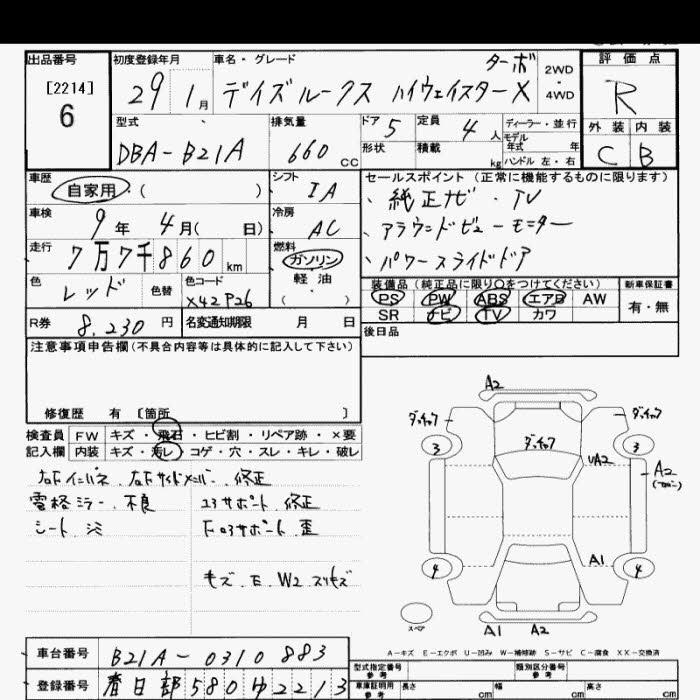 出品番号
[2214]
6
初度登録年月
29 1月
車名・グレード
ターボ
デイズルークス ハイウェイスターX
2WD
・
4WD
評価点
R
外装 内装
C B
型式
DBA-B21A
排気量
660 CC
ドア 5
定員 4人
形状
積載 kg
ディーラー・並行
モデル
年式 年
ハンドル 左・右
車歴
自家用・( )
シフト
IA
セールスポイント(正常に機能するものに限ります)
、純正ナビ・TV
、アラウンドビューモニター
、パワースライドドア
車検
9年 4月( 日)
冷房
AC
走行
7万7千860km
燃料
ガソリン
軽油
( )
色
レッド
色替
色コード
X42P26
装備品(純正品に限り○をつけてください)
PS PW ABS エアB AW
SR ナビ TV カワ
新車保証書
有・無
R券 8,230 円
名変通知期限 月 日
後日品
注意事項申告欄(不具合内容等は具体的に記入して下さい)
修復歴 有 〔箇所 〕
検査員 FW キズ・飛石・ヒビ割・リペア跡・×要
記入欄 内装 キズ・汚レ・コゲ・穴・スレ・キレ・破レ
左右Fインパネ、左右Fサイドメンバー、修正
電格ミラー、不良
コアサポート、修正
シート、シミ
Fロアサポート、歪
キズ、E、W2 スリキズ
A2
ダッチャク
ダッチャク
3
ダッチャク
3
UA2
A2
A1
4
4
スペア
A1 A2
A-キズ E-エクボ U-凹み W-補修跡 S-サビ C-腐食 XX-交換済
車台番号 B21A-0310883
型式指定番号
参考
類別区分番号
参考
登録番号 春日部580ゆ2213
車庫証明用
参考
長さ cm
幅 cm
高さ cm